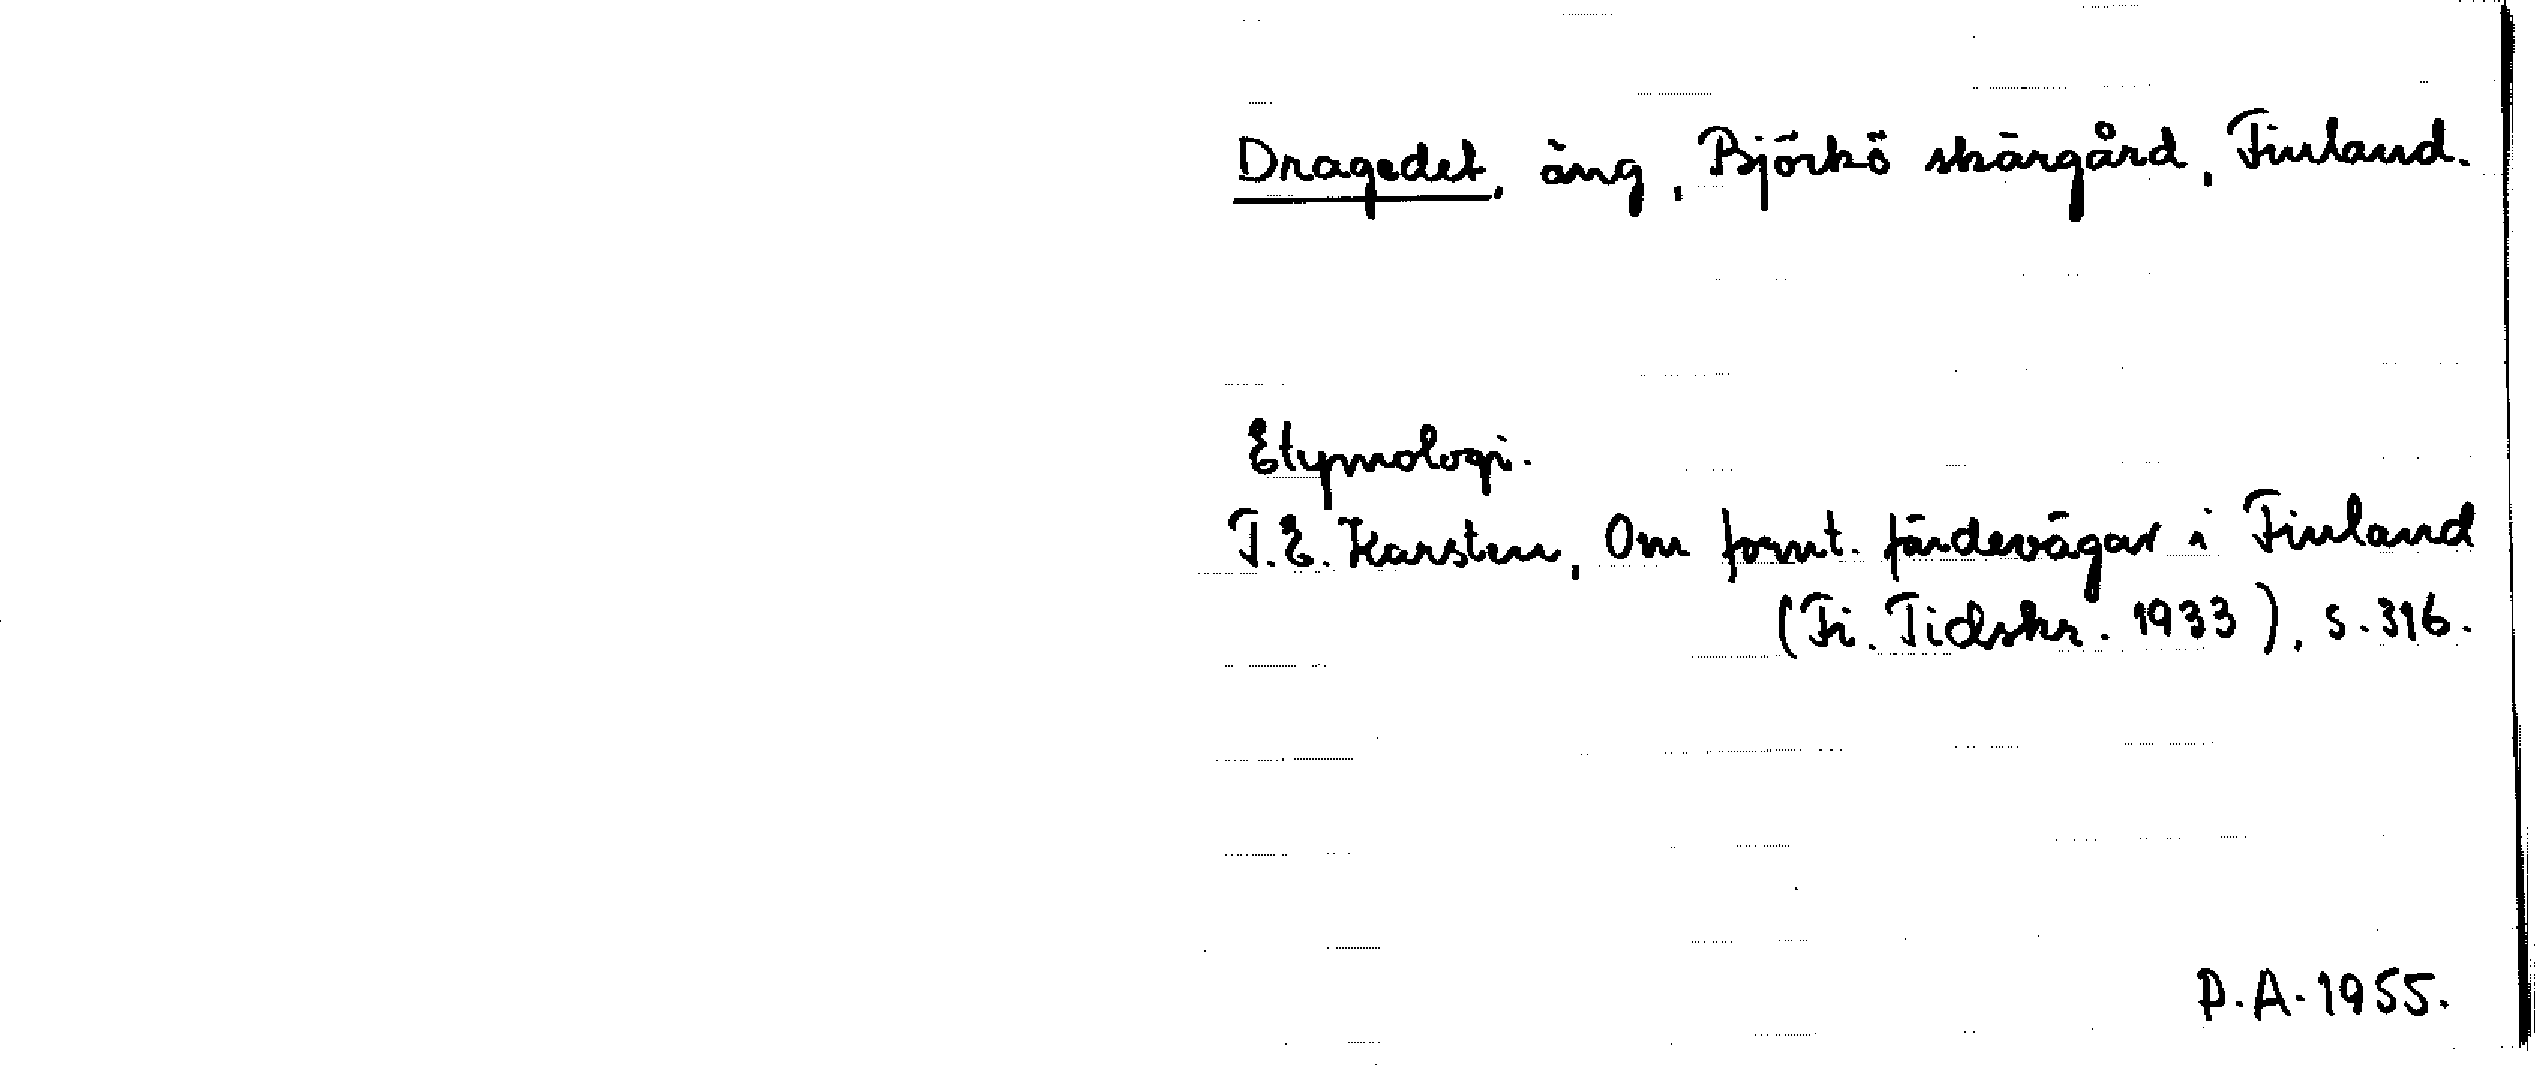 Dragedet, äng, Björkö skärgård, Finland.
Etymologi.
T.E. Karsten, Om fornt. färdevägar i Finland
(Fi. Tidskr. 1933), s. 316.
P.A. 1955.